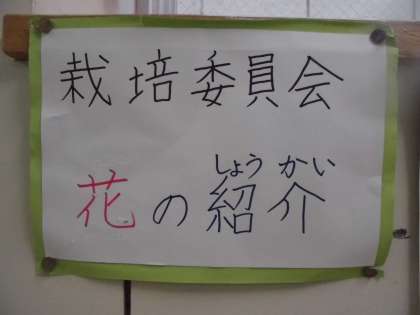 栽培委員会
しょう かい
花の紹介